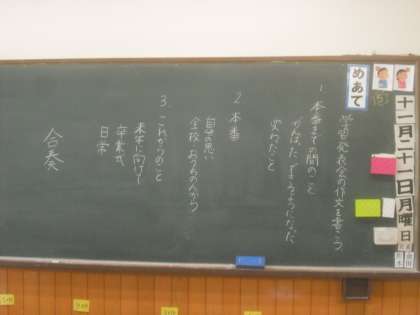 十一月二十一日月曜日
めあて
学習発表会の作文を書こう
1. 本番までの間のこと
がんばった、できるようになった
変わったこと
2. 本番
自分の思い
全校、おうちの人から
3. これからのこと
未来に向けて
卒業式
日常
合奏